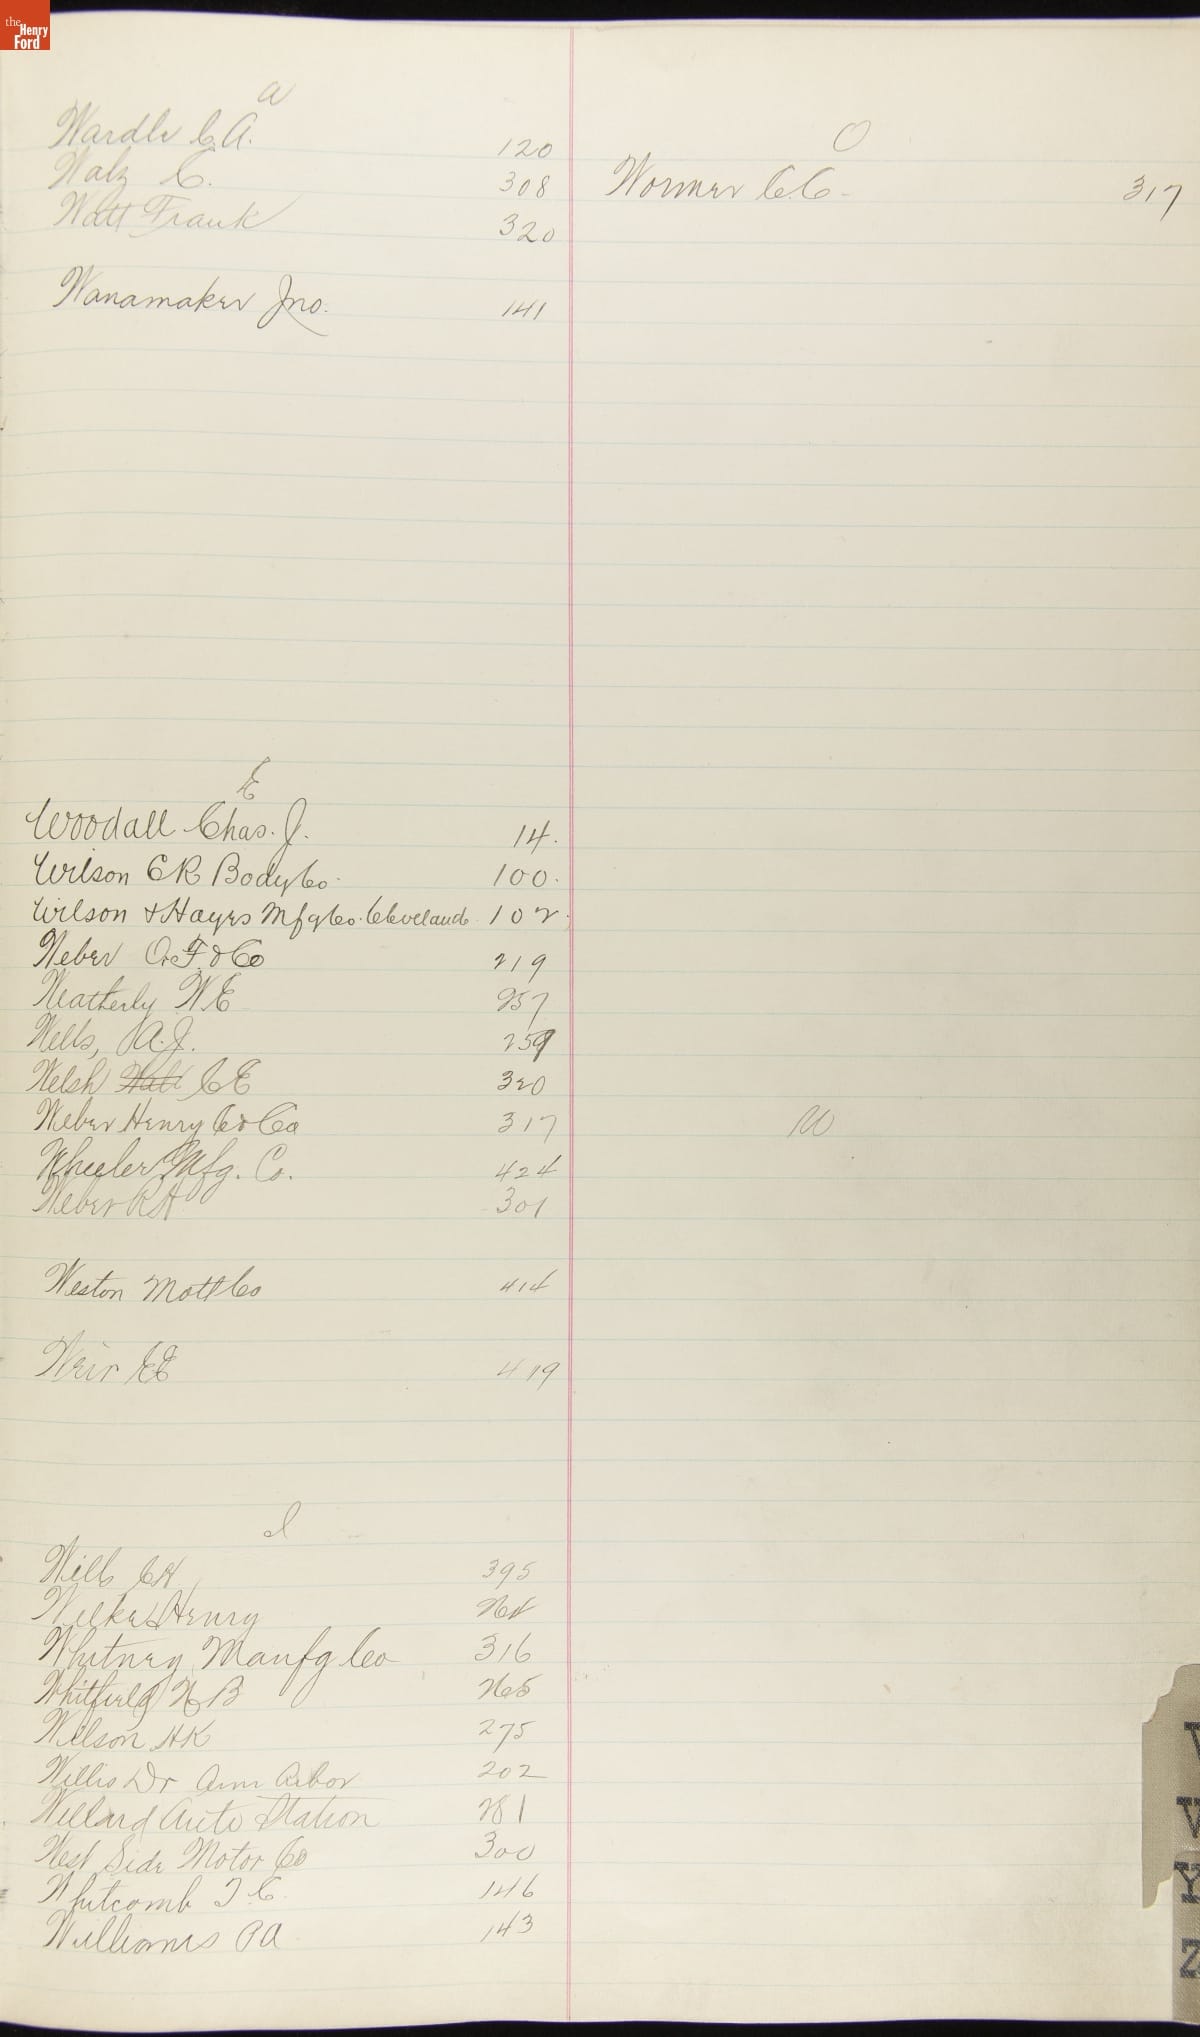 the
Henry
Ford
a
Wardle C.A. 120
Walz C. 308
Watt Frank 320
Wanamaker Jno. 141
E
Woodall Chas. J. 14.
Wilson C R Body Co. 100.
Wilson & Hayes Mfg Co. Cleveland 102.
Weber O.F. & Co 219
Weatherly W E 257
Wells, A.J. 259
Welsh C E 320
Weber Henry Co 317
Wheeler Mfg. Co. 424
Weber R H 301
Weston Mott Co 414
Weir 419
I
Wills C H 395
Wilkes Henry
Whitney Manfg Co 316
Whitfield B 265
Wilson H K 275
Willis Dr Ann Arbor 202
Willard Auto Station 281
West Side Motor Co 300
Whitcomb 146
Williams P A 143
O
Wormer C.C. 317
W
Y
Z